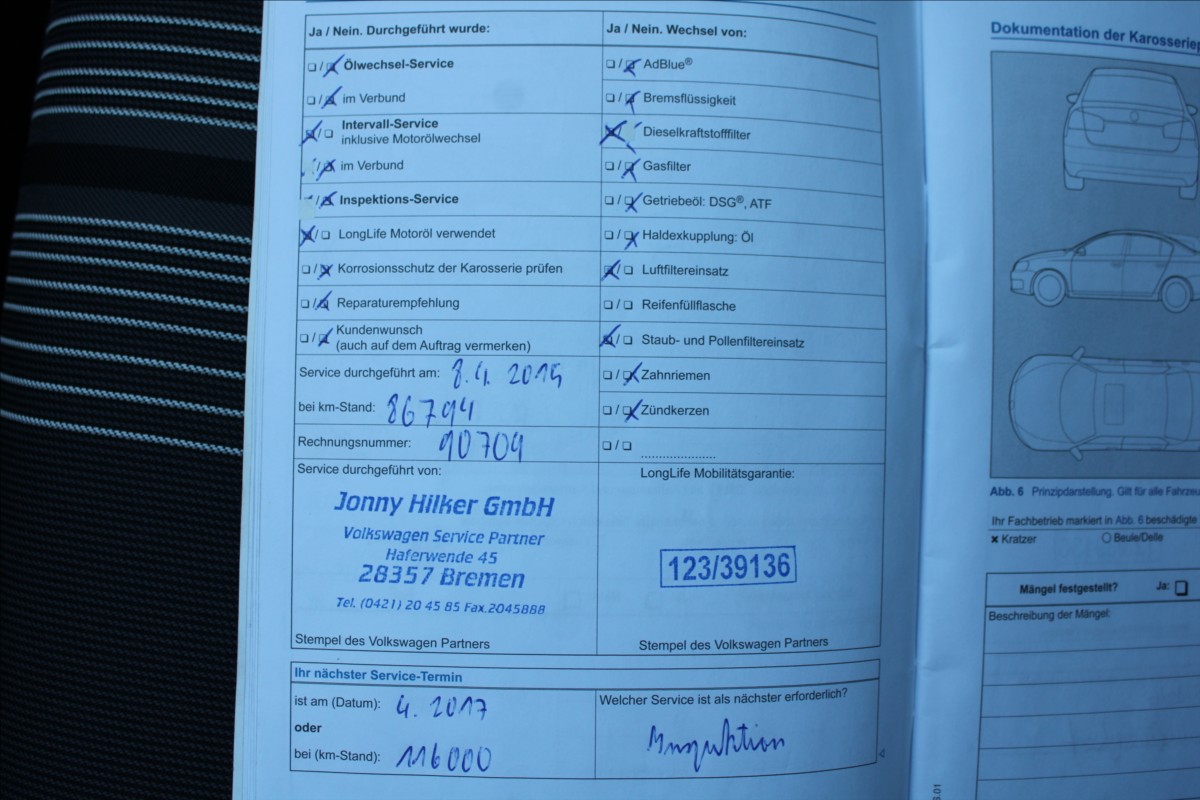 Ja / Nein. Durchgeführt wurde:
Ölwechsel-Service
im Verbund
Intervall-Service
inklusive Motorölwechsel
im Verbund
Inspektions-Service
LongLife Motoröl verwendet
Korrosionsschutz der Karosserie prüfen
Reparaturempfehlung
Kundenwunsch
(auch auf dem Auftrag vermerken)
Service durchgeführt am: 8.4. 2015
bei km-Stand: 86794
Rechnungsnummer: 90704
Service durchgeführt von:
Jonny Hilker GmbH
Volkswagen Service Partner
Haferwende 45
28357 Bremen
Tel. (0421) 20 45 85 Fax.2045888
Stempel des Volkswagen Partners
Ja / Nein. Wechsel von:
AdBlue®
Bremsflüssigkeit
Dieselkraftstofffilter
Gasfilter
Getriebeöl: DSG®, ATF
Haldexkupplung: Öl
Luftfiltereinsatz
Reifenfüllflasche
Staub- und Pollenfiltereinsatz
Zahnriemen
Zündkerzen
LongLife Mobilitätsgarantie:
123/39136
Stempel des Volkswagen Partners
Ihr nächster Service-Termin
ist am (Datum): 4. 2017
oder
bei (km-Stand): 116000
Welcher Service ist als nächster erforderlich?
Inspektion
Dokumentation der Karosseriep
Abb. 6 Prinzipdarstellung. Gilt für alle Fahrzeu
Ihr Fachbetrieb markiert in Abb. 6 beschädigte
× Kratzer
Beule/Delle
Mängel festgestellt? Ja:
Beschreibung der Mängel: